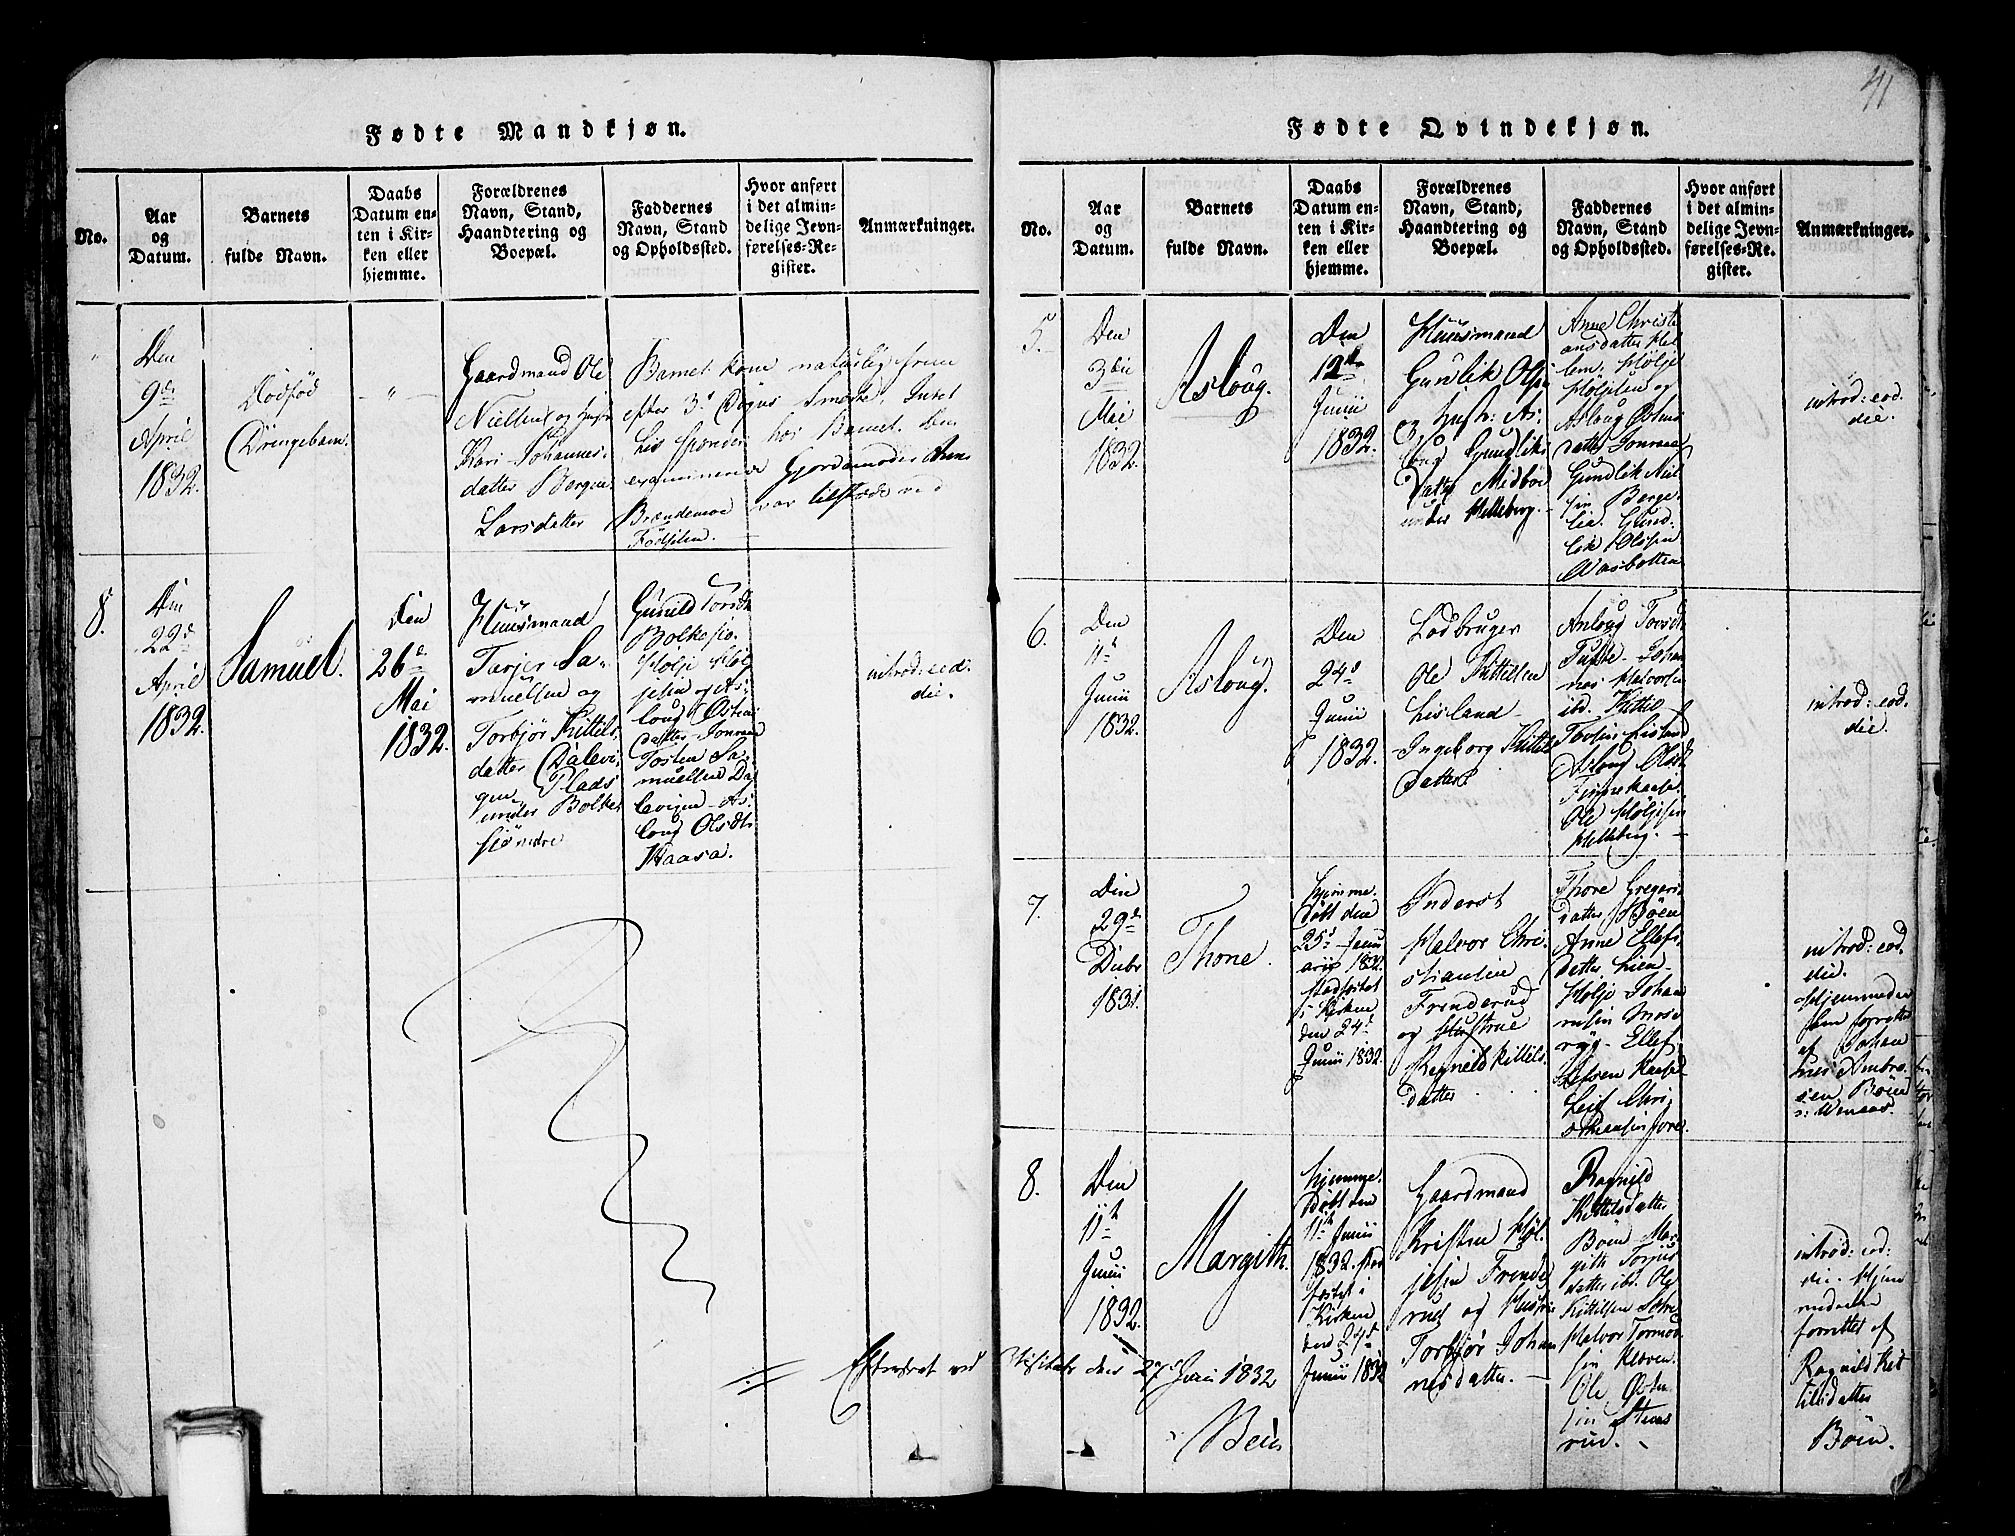 41
Fødte Mandkjøn.
No.
Aar
og
Datum.
Barnets
fulde Navn.
Daabs
Datum en-
ten i Kir-
ken eller
hjemme.
Forældrenes
Navn, Stand,
Haandtering og
Boepæl.
Faddernes
Navn, Stand
og Opholdssted.
Hvor anført
i det almin-
delige Jevn-
førelses-Re-
gister.
Anmærkninger.
"
Den
9de
April
1832.
Dödfød
Drengebarn.
"
Gaardmand Ole
Nielsen og
Kari Johannes-
datter Borgen
Larsdatter
Barnet kom naturlig frem
efter 3de Døgns Smerte. Intet
Livs hos Barnet. Den
examinerede Gjordemoder
Brændemoe var tilstæde ved
Födselen.
8.
Den
22de
April
1832.
Samuel.
Den
26de
Mai
1832.
Huusmand
Tarjer Sa-
muelsen og
Torbjør Kittils-
datter Dalevi-
gen Plads
under Bolke-
siø nedre
Gunild Torsdtr
Bolkesiø.
Hölje Höl-
jesen og As-
loug Østens
datter Jonraa
Tosten Sa-
muelsen Da-
levigen - As-
loug Olsdtr
Kaasa.
introd: eod:
die.
Fødte Qvindekjøn.
No.
Aar
og
Datum.
Barnets
fulde Navn.
Daabs
Datum en-
ten i Kir-
ken eller
hjemme.
Forældrenes
Navn, Stand,
Haandtering og
Boepæl.
Faddernes
Navn, Stand
og Opholdssted.
Hvor anført
i det almin-
delige Jevn-
førelses-Re-
gister.
Anmærkninger.
5.
Den
3die
Mai
1832.
Asloug.
Den
12te
Junii
1832.
Huusmand
Gunlik Olsen
og Hustr: As-
loug Gundliks
datter Midbøe
under Helleberg.
Anne Christi
ansdatter Hel
lem. Hölje
Höljesen og
Asloug Østens
datter Jonraa
Gundlik Niel
sen Borge-
lie. Gund-
lik Olsen
Wasbotten
introd: eod:
die.
6.
Den
11te
Junii
1832.
Asloug.
Den
24de
Junii
1832.
Lodbruger
Ole Kittilsen
Lisland
Ingeborg Kittils
datter
Asloug Torsdtr
Tufte - Johan
nes Halvorsen
ibd. Kittil
Tovsen Lisland
Asloug Olsdtr
Ole Höljesen
Helleberg.
introd: eod:
die.
7.
Den
29de
Decbr
1831.
Thone.
hjemme-
døbt den
25de Janu
arii 1832.
stadfæstet
i Kirken
den 24de
Junii 1832.
Inderst
Halvor Chri-
stiansen
Frenderud
og Hustrue
Regnild Kittils-
datter
Thore Gregers-
datter Böen
Anne Ellefs-
datter Lien
Hölje Johan
nesen Mose-
røg - Ellef
Leif Chri-
stiansen
introd: eod:
die.
Hjemmedaa
ben forrettet
af Johan
nes Ambro-
sen Böen
8.
Den
11te
Junii
1832.
Margith.
hjemme-
døbt den
11te Junii
1832. stad
fæstet i
Kirken
den 24de
Junii 1832
Gaardmand
Kristen Höl-
jesen Frende
rud og Hustrue
Torbjør Johan
nesdatter.
Ragnild
Kittilsdatter
Böen Mar-
gith Torjus
datter ibd. Ole
Kittilsen
Halvor Tormod
sen Kleven.
Ole Østen
sen
rud.
introd: eod:
die. Hjem
medaaben
forrettet af
Ragnild Kit
tilsdatter
Böen.
Efterseet ved Visitats den 27de Juni 1832